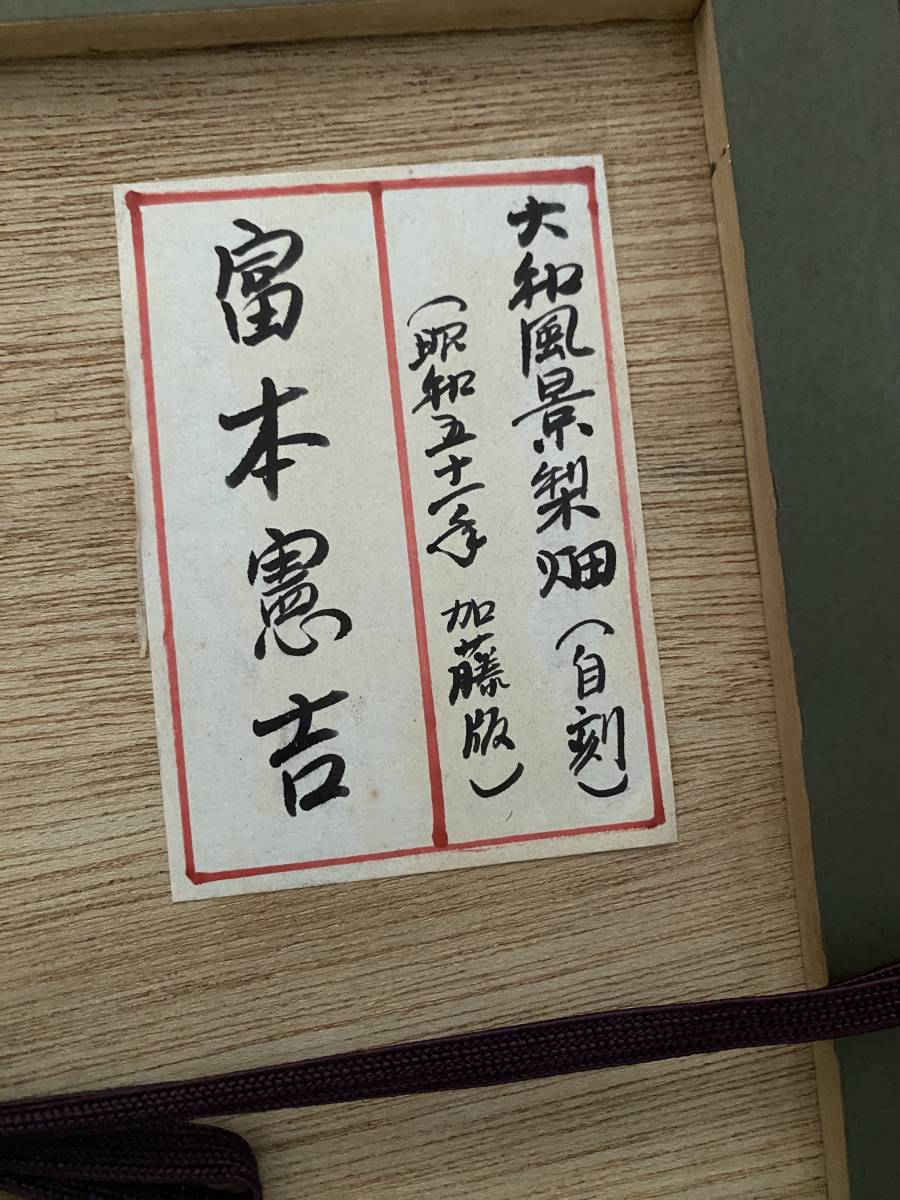 大和風景梨畑（自刻）
（昭和五十一年 加藤版）
富本憲吉